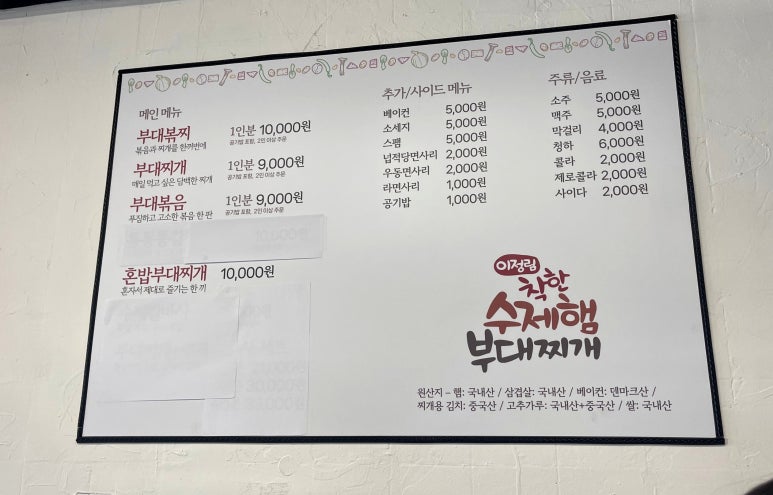 메인 메뉴
부대볶찌 1인분 10,000원
볶음과 찌개를 한꺼번에 공기밥 포함, 2인 이상 주문
부대찌개 1인분 9,000원
매일 먹고 싶은 담백한 찌개 공기밥 포함, 2인 이상 주문
부대볶음 1인분 9,000원
푸짐하고 고소한 볶음 한 판 공기밥 포함, 2인 이상 주문
혼밥부대찌개 10,000원
혼자서 제대로 즐기는 한 끼
추가/사이드 메뉴
베이컨 5,000원
소세지 5,000원
스팸 5,000원
넙적당면사리 2,000원
우동면사리 2,000원
라면사리 1,000원
공기밥 1,000원
주류/음료
소주 5,000원
맥주 5,000원
막걸리 4,000원
청하 6,000원
콜라 2,000원
제로콜라 2,000원
사이다 2,000원
이정림
착한
수제햄
부대찌개
원산지 – 햄: 국내산 / 삼겹살: 국내산 / 베이컨: 덴마크산 /
찌개용 김치: 중국산 / 고추가루: 국내산+중국산 / 쌀: 국내산